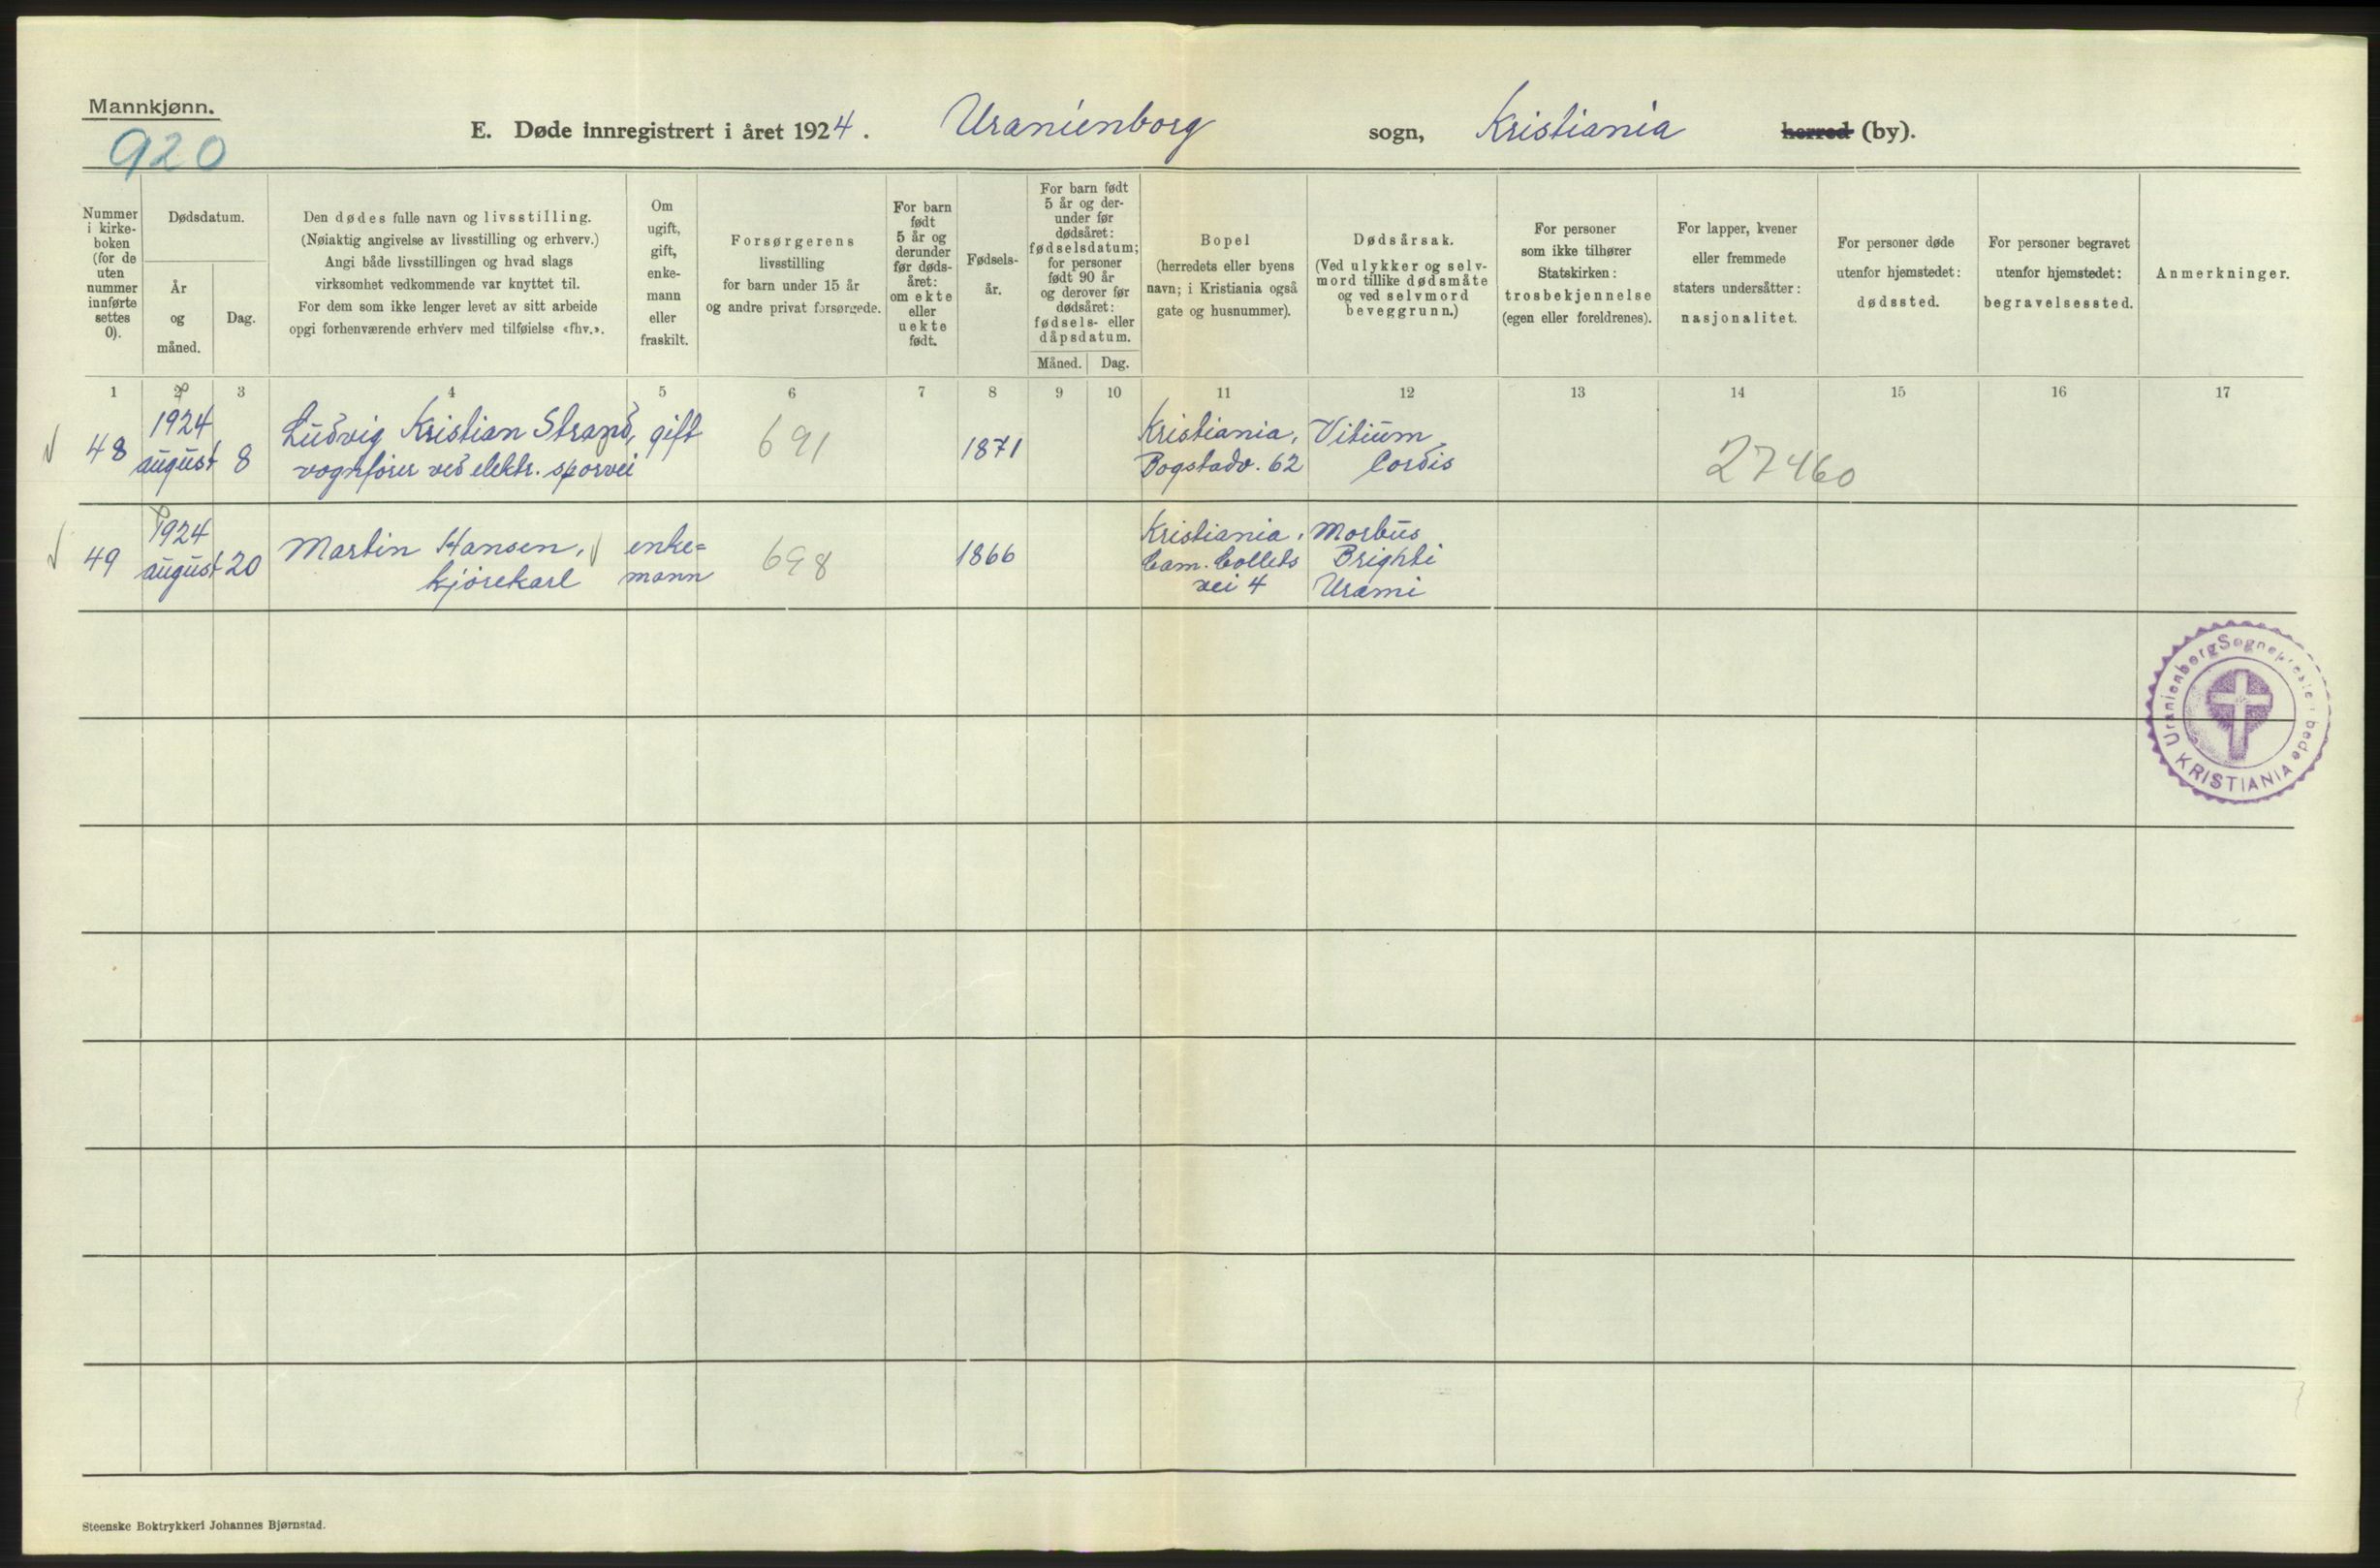 Mannkjønn.
920
E. Døde innregistrert i året 1924. Uranienborg sogn, Kristiania herred (by).
Nummer
i kirke-
boken
(for de
uten
nummer
innførte
settes
0).
Dødsdatum.
År
og
måned.
Dag.
Den dødes fulle navn og livsstilling.
(Nøiaktig angivelse av livsstilling og erhverv.)
Angi både livsstillingen og hvad slags
virksomhet vedkommende var knyttet til.
For dem som ikke lenger levet av sitt arbeide
opgi forhenværende erhverv med tilføielse «fhv.».
Om
ugift,
gift,
enke-
mann
eller
fraskilt.
Forsørgerens
livsstilling
for barn under 15 år
og andre privat forsørgede.
For barn
født
5 år og
derunder
før døds-
året:
om ekte
eller
uekte
født.
Fødsels-
år.
For barn født
5 år og der-
under før
dødsåret:
fødselsdatum;
for personer
født 90 år
og derover før
dødsåret:
fødsels- eller
dåpsdatum.
Måned. Dag.
Bopel
(herredets eller byens
navn; i Kristiania også
gate og husnummer).
Dødsårsak.
(Ved ulykker og selv-
mord tillike dødsmåte
og ved selvmord
beveggrunn.)
For personer
som ikke tilhører
Statskirken:
trosbekjennelse
(egen eller foreldrenes).
For lapper, kvener
eller fremmede
staters undersåtter:
nasjonalitet.
For personer døde
utenfor hjemstedet:
dødssted.
For personer begravet
utenfor hjemstedet:
begravelsessted.
Anmerkninger.
1 2 3 4 5 6 7 8 9 10 11 12 13 14 15 16 17
1924 Ludvig Kristian Strand, gift 691 1871 Kristiania, Vitium
48 august 8 vognfører ved elektr. sporvei Bogstadv. 62 Cordis 27460
1924 Martin Hansen, enke= 698 1866 Kristiania, Morbus
49 august 20 kjørekarl mann Cam. Colletts Brighti
vei 4 Urämi
Uranienborg Sogneprestembede
KRISTIANIA
Steenske Boktrykkeri Johannes Bjørnstad.